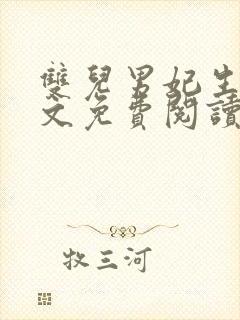 雙兒男妃生
文免費閱讀
牧三河